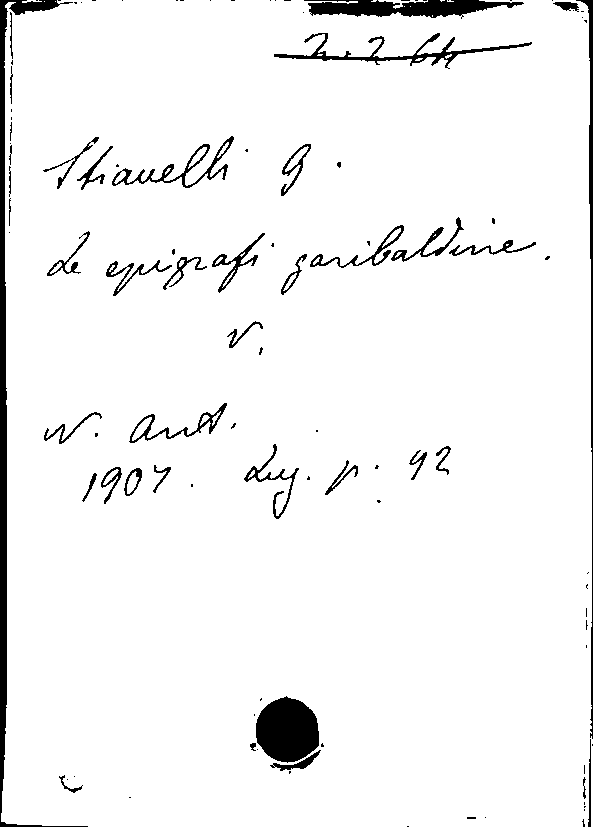 2.2 64
Stiavelli G.
Le epigrafi garibaldine.
V.
N. Ant.
1907. Lug. p. 92